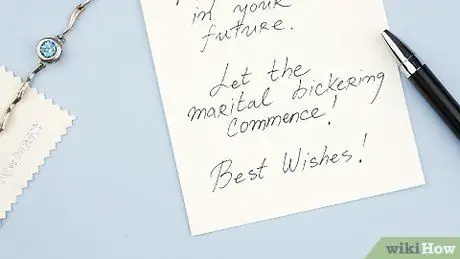 in your
future.
Let the
marital bickering
commence!
Best Wishes!
wikiHow